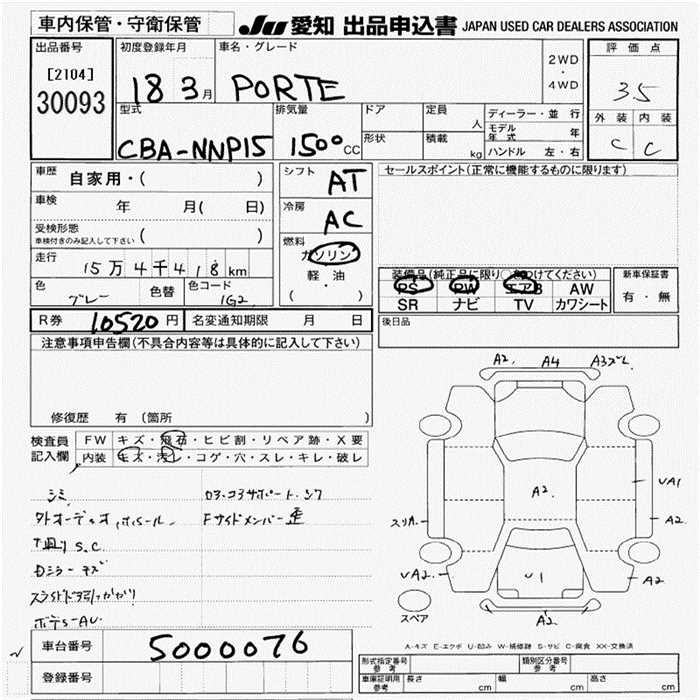 車内保管・守衛保管
JU 愛知 出品申込書 JAPAN USED CAR DEALERS ASSOCIATION
出品番号
[2104]
30093
初度登録年月
18 3月
車名・グレード
PORTE
2WD
・
4WD
評価点
3.5
外装 内装
C C
型式
CBA-NNP15
排気量
1500cc
ドア
形状
定員
人
積載
kg
ディーラー・並行
モデル年式 年
ハンドル 左・右
車歴 自家用・( )
車検 年 月( 日)
受検形態
車検付きのみ記入して下さい ( )
走行 15万4千418km
色 グレー 色替 色コード 1G2
シフト AT
冷房 AC
燃料
ガソリン
軽・油
( ・ )
セールスポイント(正常に機能するものに限ります)
装備品(純正品に限り○をつけてください)
PS PW エアB AW
SR ナビ TV カワシート
新車保証書
有・無
R券 10520円 名変通知期限 月 日
後日品
注意事項申告欄(不具合内容等は具体的に記入して下さい)
修復歴 有 (箇所 )
検査員記入欄
FW キズ・飛石・ヒビ割・リペア跡・X要
内装 キズ・汚レ・コゲ・穴・スレ・キレ・破レ
シミ
外オーディオ,ホイール
下廻りS.C.
Dミラーキズ
Fサイドメンバー歪
A2. A4 A3ズレ
A2.
UA1
A2
スリ
UA2
U1
A2
A2
スペア
A-キズ E-エクボ U-凹み W-補修跡 S-サビ C-腐食 XX-交換済
車台番号 5000076
登録番号
形式指定番号
参考
類別区分番号
参考
車庫証明用
参考
長さ cm 幅 cm 高さ cm